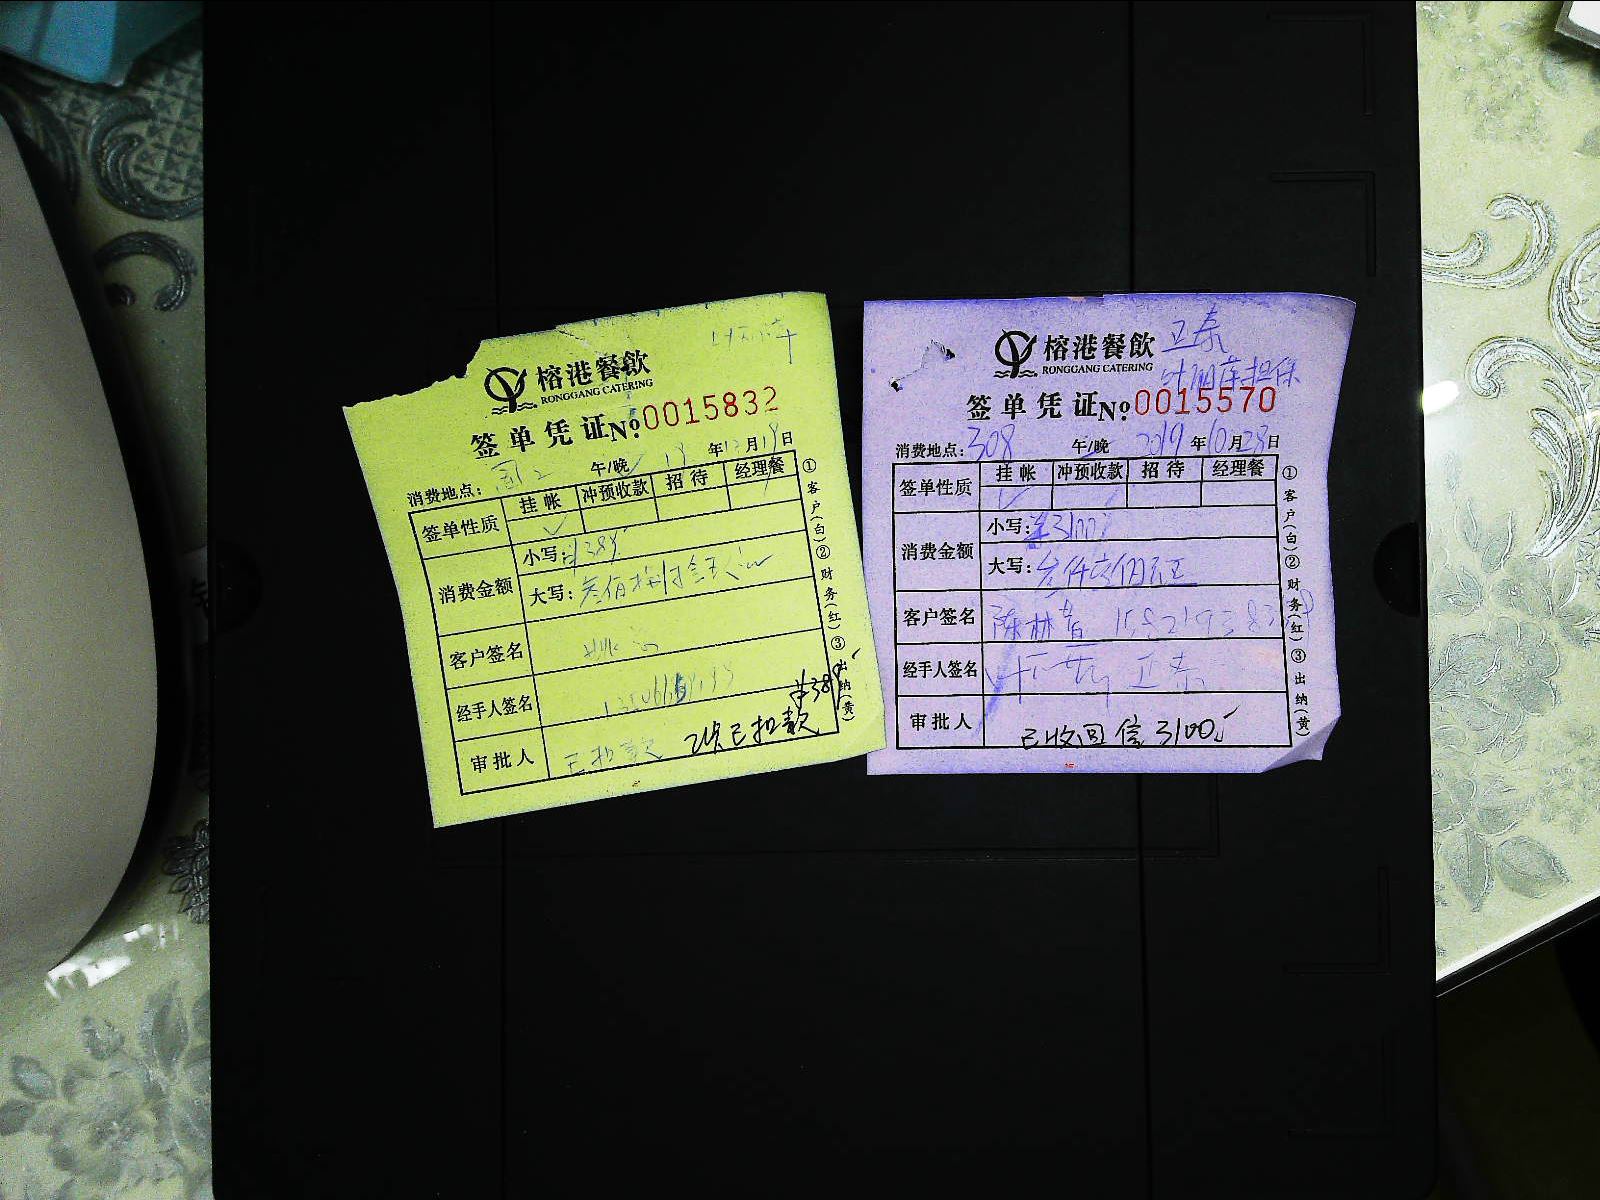 榕港餐飲
RONGGANG CATERING
签单凭证 No 0015832
消费地点: 午/晚 19年12月19日
签单性质 挂帐 冲预收款 招待 经理餐
消费金额 小写: 389
大写: 叁佰
客户签名
经手人签名
审批人 已扣款 已扣款 389
①客户(白)②财务(红)③出纳(黄)
榕港餐飲
RONGGANG CATERING
担保
签单凭证 No 0015570
消费地点: 308 午/晚 2019年10月28日
签单性质 挂帐 冲预收款 招待 经理餐
消费金额 小写: 3100
大写: 叁仟壹佰元正
客户签名 陈林
经手人签名
审批人 已收回 3100
①客户(白)②财务(红)③出纳(黄)